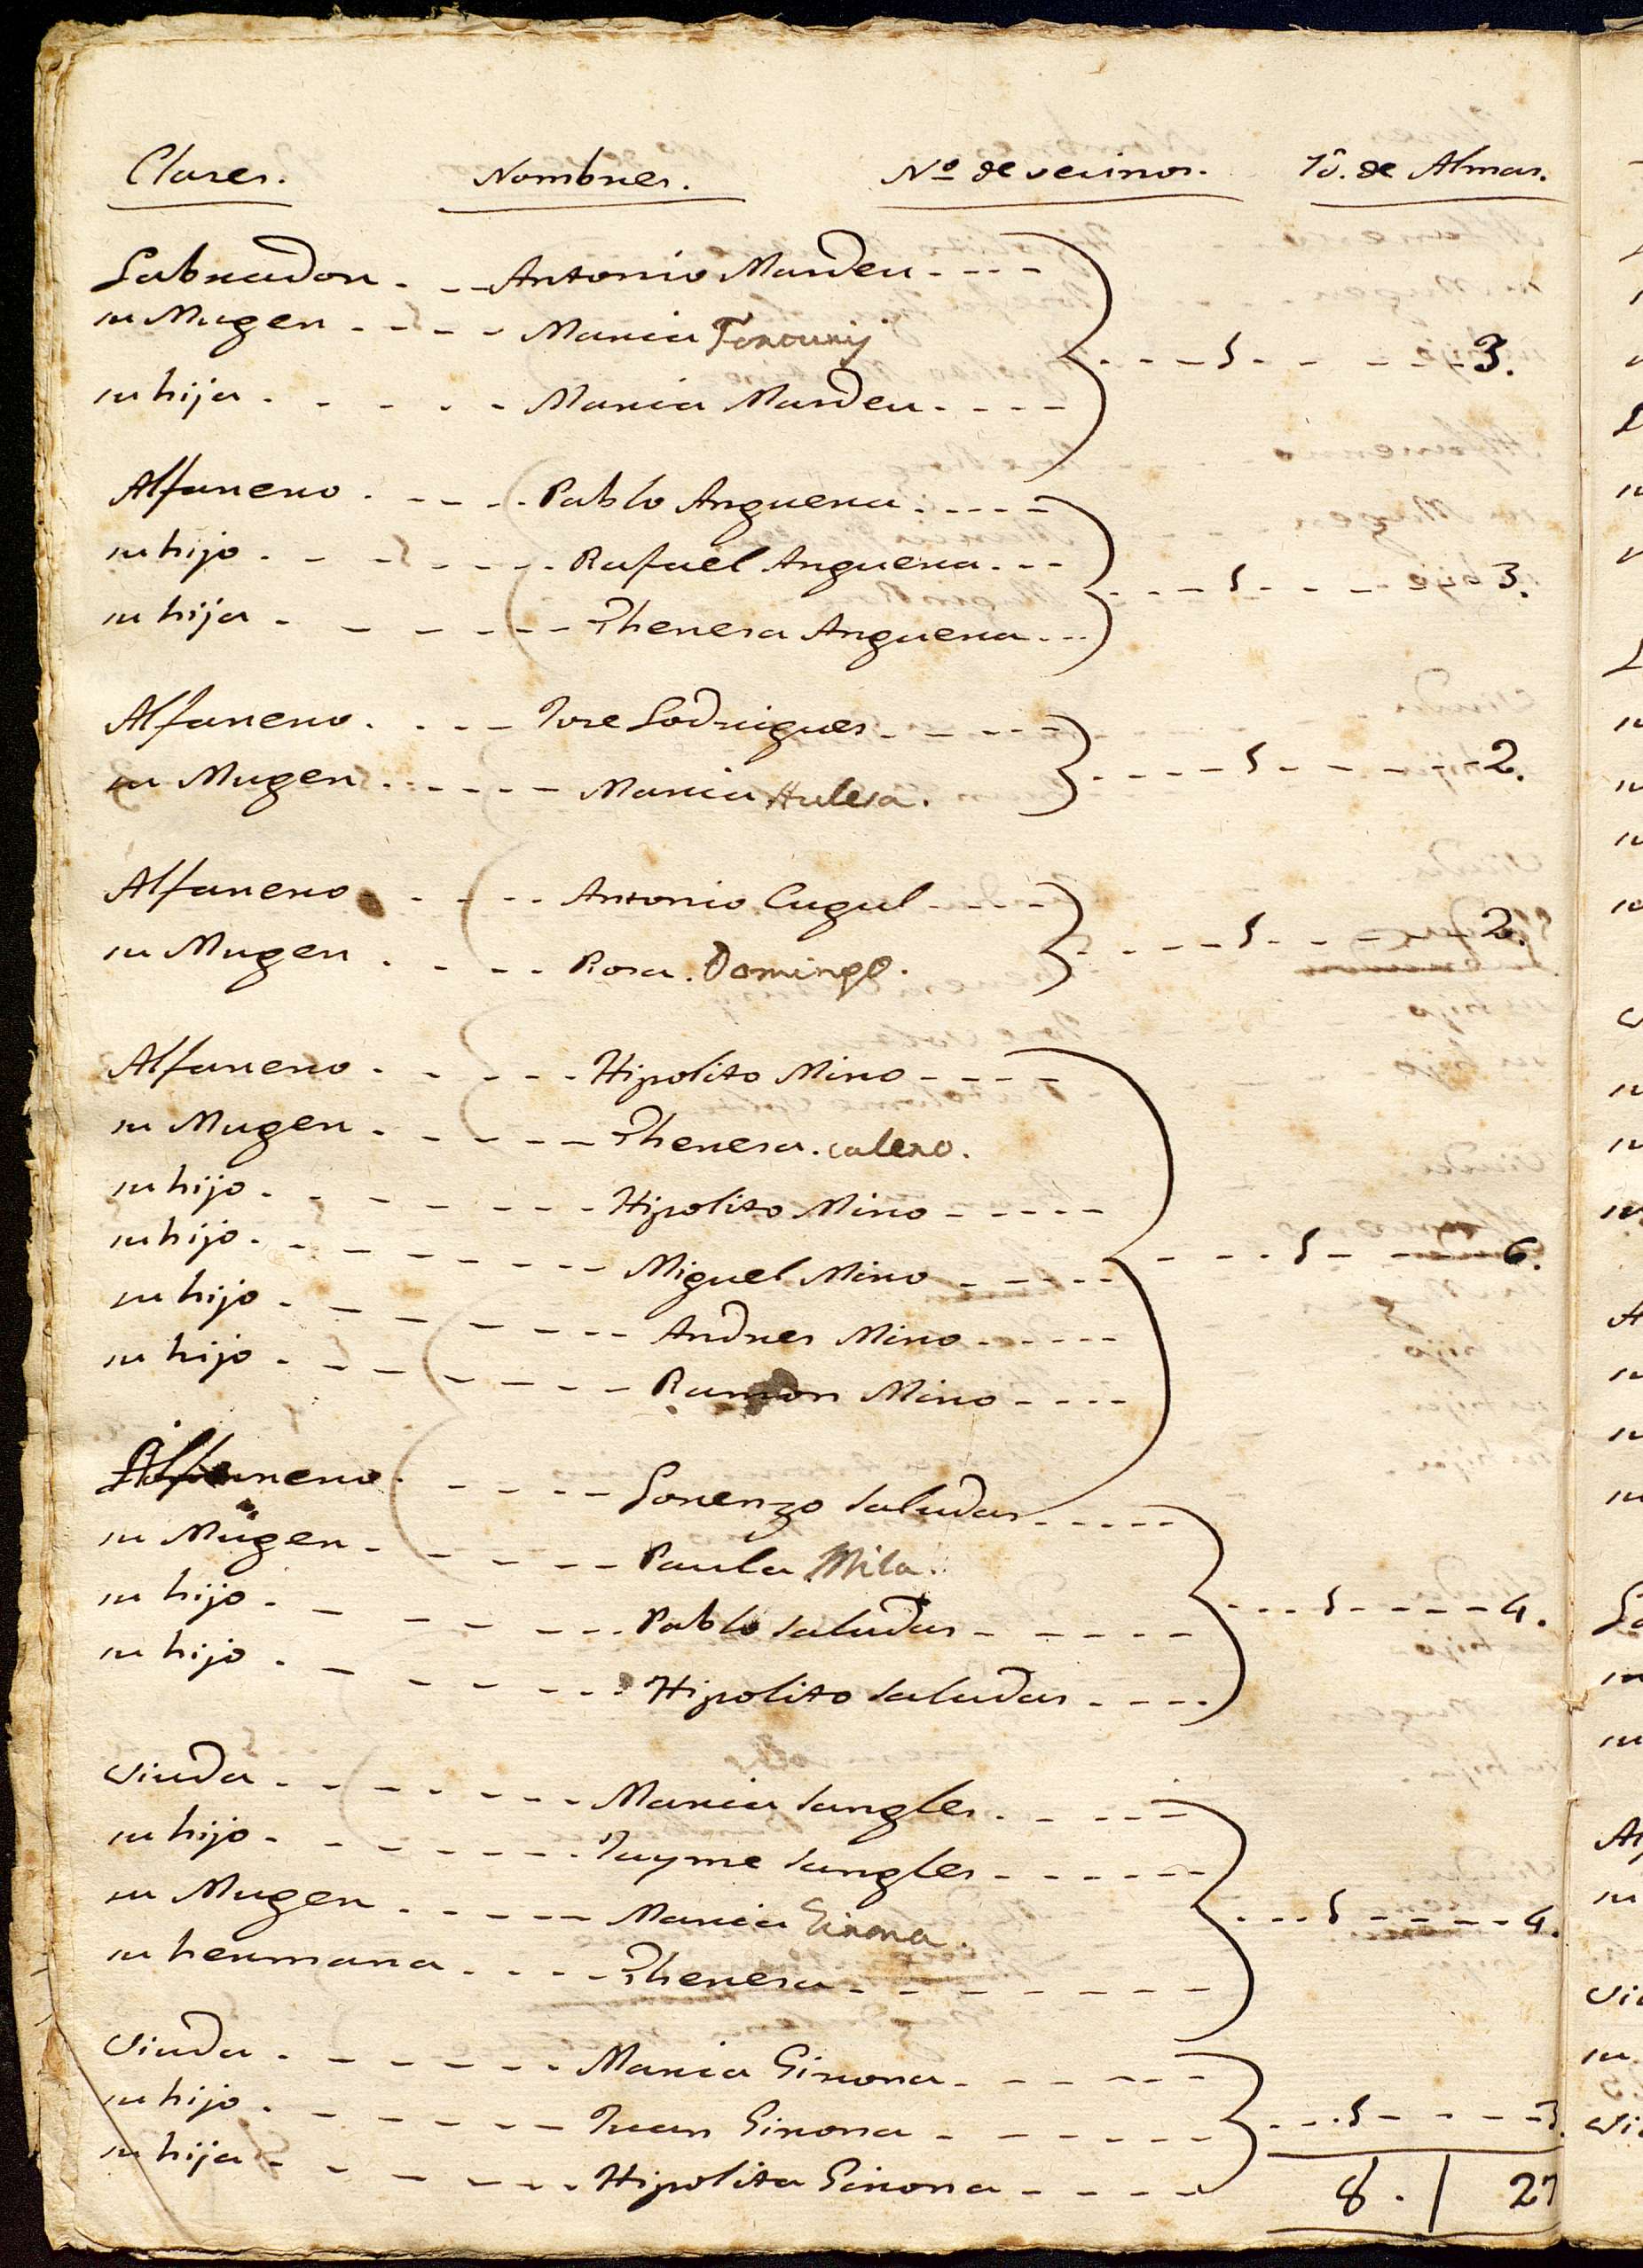 Clases. Nombres. Nº de vecinos. Tô. de Almas.
Labrador Antonio Mardeu
su Muger María Forcunij 1 3.
su hija María Mardeu
Alfarero Pablo Arguera
su hijo Rafael Arguera 1 3.
su hija Theresa Arguera
Alfarero Jose Lodrigues
su Muger María Hulesa. 1 2.
Alfarero Antonio Cugul
su Muger Rosa. Domingo. 1 2.
Alfarero Hipolito Miro
su Muger Theresa. calero.
su hijo Hipolito Miro
su hijo Miguel Miro 1 6.
su hijo Andres Miro
su hijo Ramon Miro
Alfarero Lorenzo Saludas
su Muger Paula Mila.
su hijo Pablo Saludas 1 4.
su hijo Hipolito Saludas
Viuda María Sangles
su hijo Jayme Sangles
su Muger María Girona. 1 4.
su hermana Theresa
Viuda María Girona
su hijo Juan Girona 1 3.
su hija Hipolita Girona
8. 27